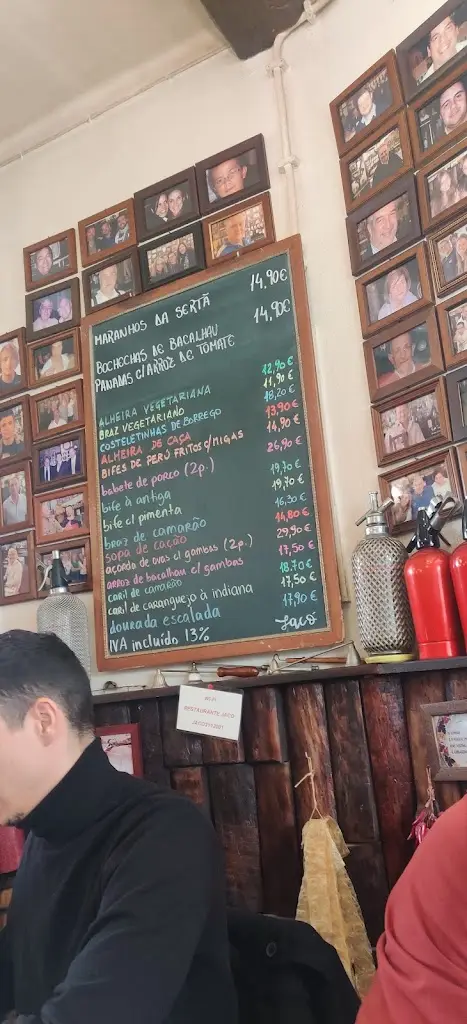 MARANHOS DA SERTÃ 14,90€
BOCHECHAS DE BACALHAU
PANADAS C/ARROZ DE TOMATE 14,90€
ALHEIRA VEGETARIANA 12,90€
BRAZ VEGETARIANO 11,90€
COSTELETINHAS DE BORREGO 18,20€
ALHEIRA DE CAÇA 13,90€
BIFES DE PERÚ FRITOS C/MIGAS 14,90€
babete de porco (2p.) 26,90€
bife à antiga 19,70€
bife c/ pimenta 19,70€
braz de camarão 16,30€
sopa de cação 14,80€
açorda de ovas c/ gambas (2p.) 29,90€
arroz de bacalhau c/ gambas 17,50€
caril de camarão 18,70€
caril de caranguejo à indiana 17,50€
dourada escalada 17,90€
IVA incluído 13% Jacó
WI-FI
RESTAURANTE JACO